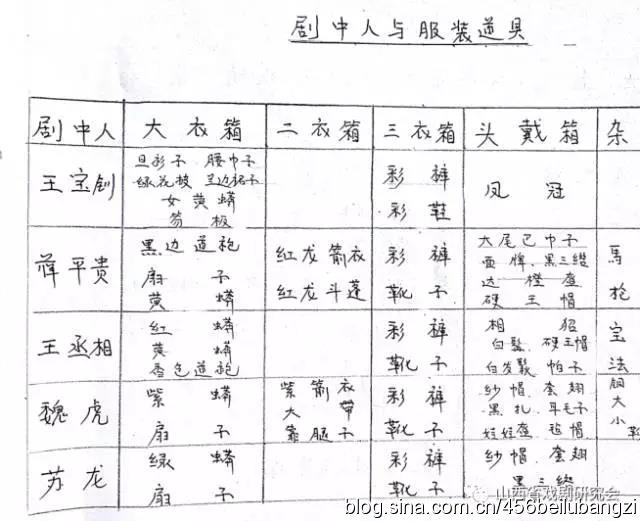 剧中人与服装道具
剧中人 大衣箱 二衣箱 三衣箱 头戴箱 杂
王宝钏
旦衫子 腰巾子
绿花披 呈边裙子
女黄蟒
笏板
彩裤
彩鞋
凤冠
薛平贵
黑边道袍
扇子
黄蟒
红龙箭衣
红龙斗蓬
彩裤
靴子
大尾巴巾子
黑三绺
硬王帽
馬
王丞相
红蟒
黄蟒
香色道袍
彩裤
靴子
相貂
白髯 硬王帽
白发鬏 帕子
宝
法
魏虎
紫蟒
扇子
紫箭衣
大带
靠腿子
彩裤
靴子
纱帽 套翅
黑扎 耳毛子
娃娃盔 毡帽
胆
大
小
靴
苏龙
绿蟒
扇子
彩裤
靴子
纱帽 套翅
黑三绺
山西省戏剧研究会
blog.sina.com.cn/456beilubangzi